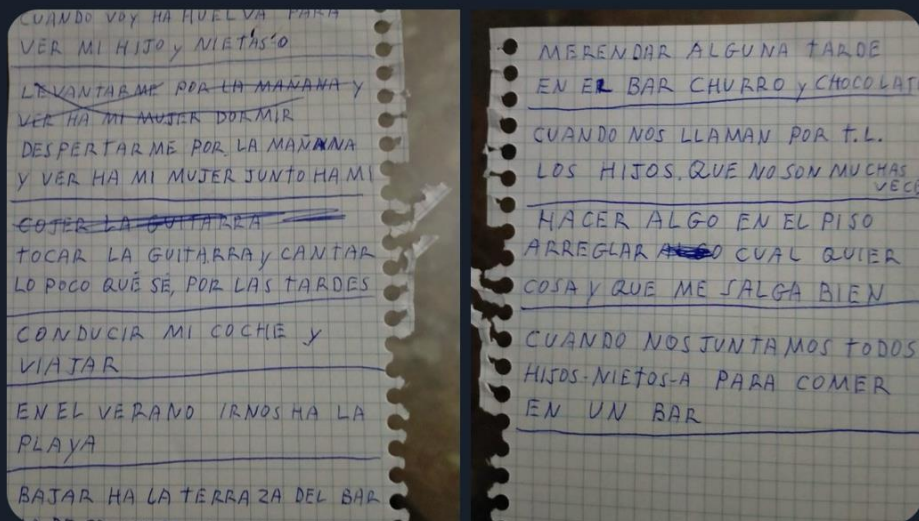 CUANDO VOY HA HUELVA PARA
VER MI HIJO y NIETAS-O
LEVANTARME POR LA MAÑANA y
VER HA MI MUJER DORMIR
DESPERTARME POR LA MAÑANA
Y VER HA MI MUJER JUNTO HA MI
COJER LA GUITARRA
TOCAR LA GUITARRA y CANTAR
LO POCO QUÉ SÉ, POR LAS TARDES
CONDUCIR MI COCHE y
VIAJAR
EN EL VERANO IRNOS HA LA
PLAYA
BAJAR HA LA TERRAZA DEL BAR
MERENDAR ALGUNA TARDE
EN EL BAR CHURRO y CHOCOLAT
CUANDO NOS LLAMAN POR T.L.
LOS HIJOS. QUE NO SON MUCHAS
VECE
HACER ALGO EN EL PISO
ARREGLAR CUAL QUIER
COSA y QUE ME SALGA BIEN
CUANDO NOS JUNTAMOS TODOS
HIJOS-NIETOS-A PARA COMER
EN UN BAR